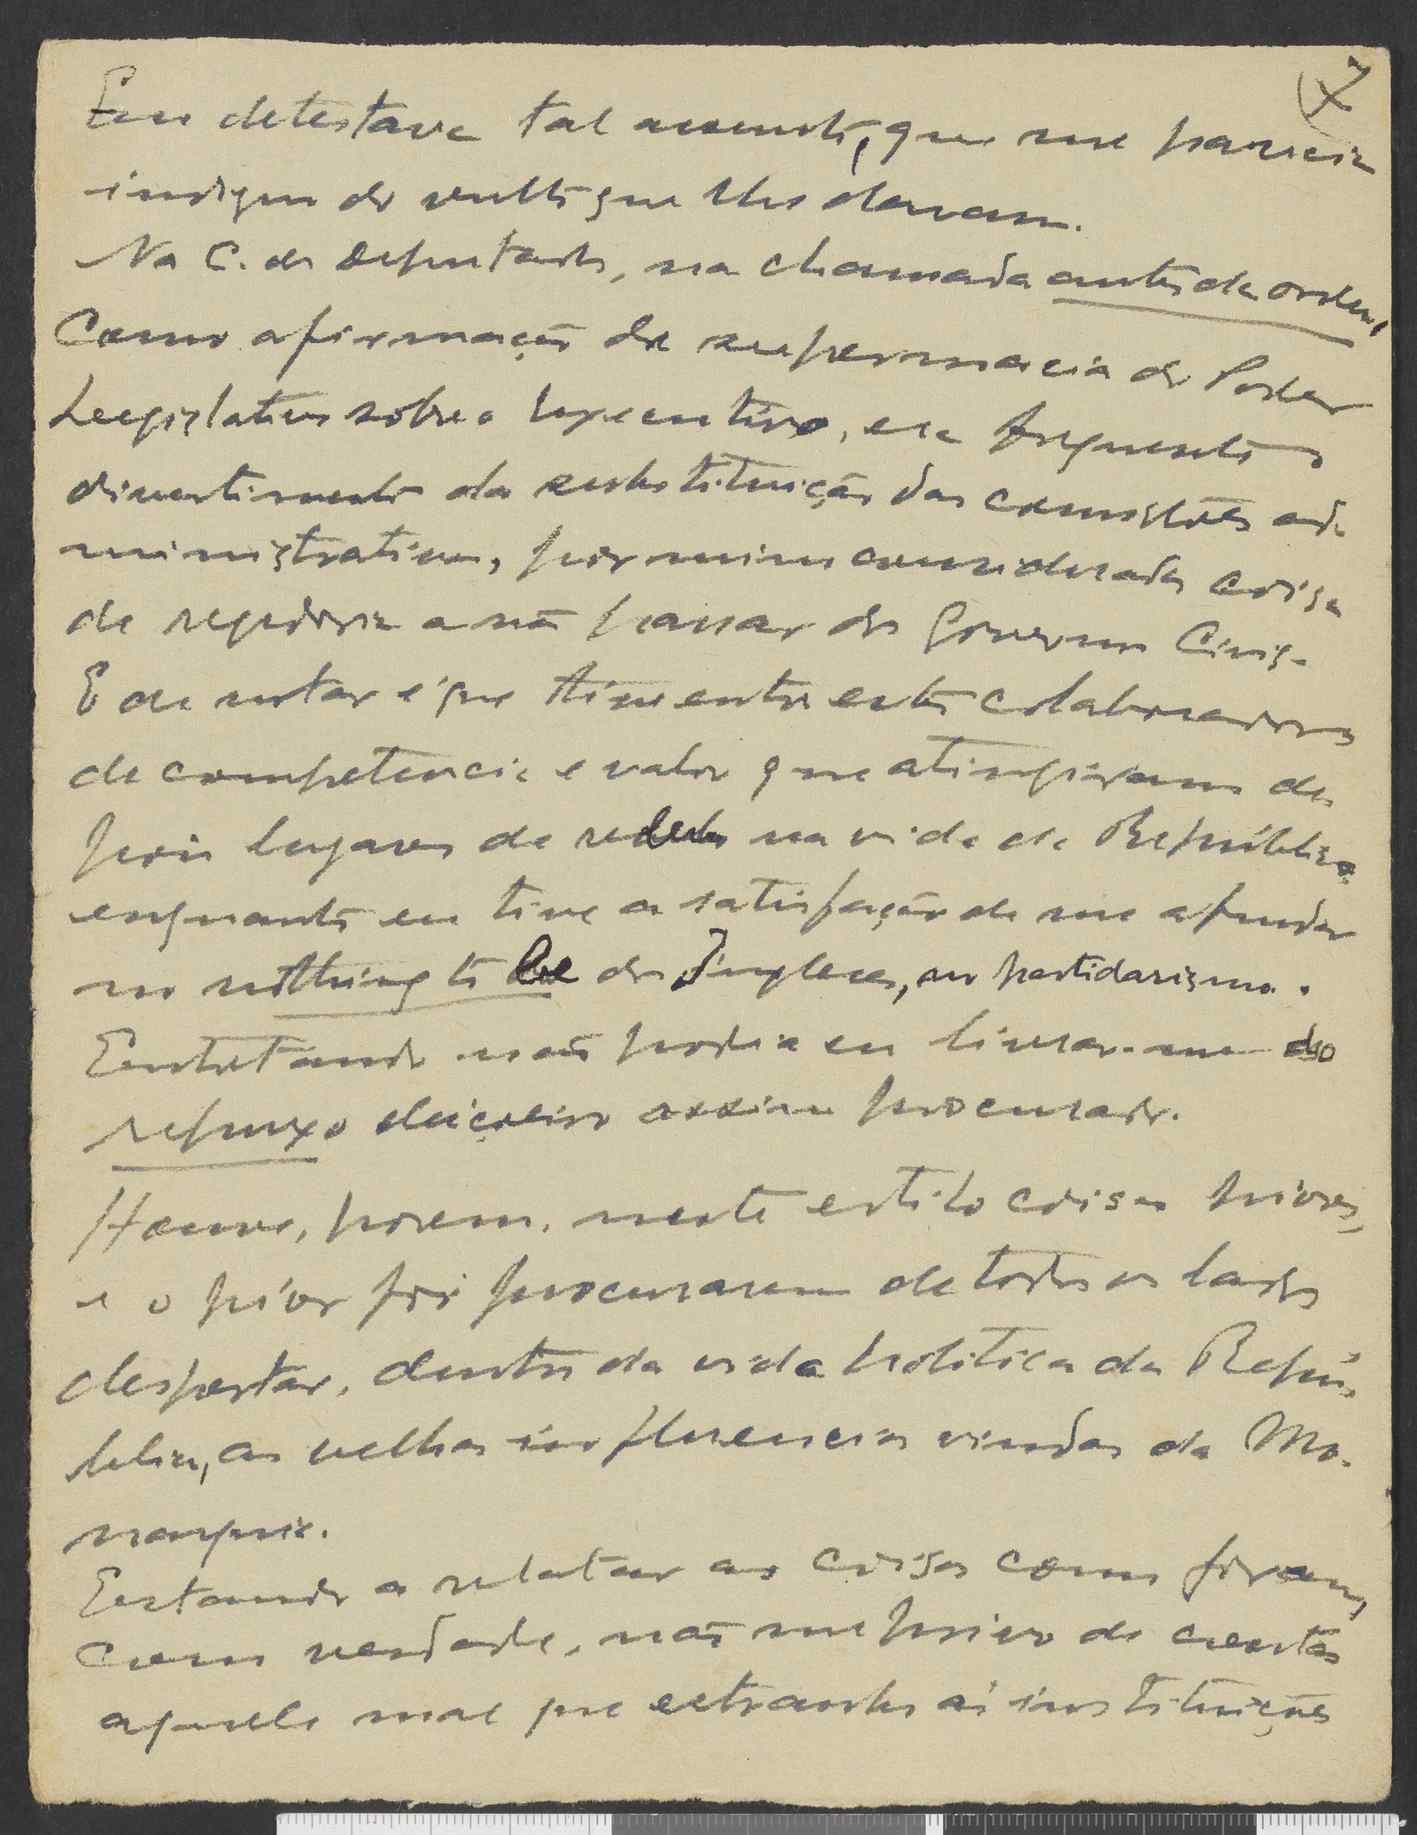 7
Eu detestava tal assunto, que me parecia
indigno do vulto que lhe davam.
Na C. dos Deputados, na chamada antes da ordem,
como afirmação da supermacia do Poder
Legislativo sobre o Executivo, era frequente o
divertimento da substituição das comissões ad-
ministrativas, por mim consideradas coisa
de regedoria a não passar do Governo Civil.
E de notar é que tive entre estes colaboradores
de competencia e valor que atingiram de-
pois lugares de relevo na vida da República
enquanto eu tive a satisfação de me afundar
no nothing to be dos Ingleses, no partidarismo.
Entretando não podia eu livrar-me do
repuxo eleiçoeiro assim procurado.
Houve, porem, neste estilo coisas piores,
e o pior foi procurarem de todos os lados
despertar, dentro da vida politica da Repú-
blica, as velhas influencias vindas da Mo-
narquia.
Estando a relatar as coisas como foram,
com verdade, não me privo de
aquele mal que às instituições